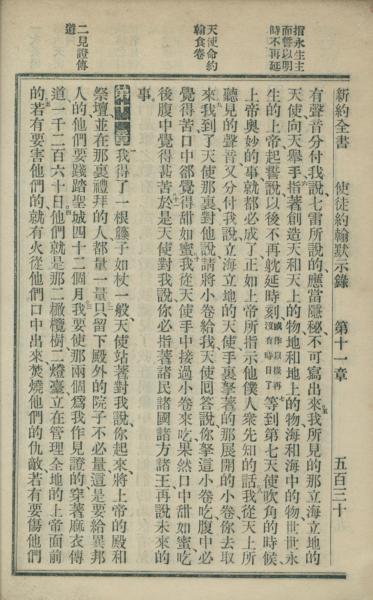 新約全書　使徒約翰默示錄　第十一章　五百三十
指永生主
而誓以明
時不再延
天使命約
翰食卷
二見證傳
道
有聲音分付我說七雷所說的應當隱秘不可寫出來我所見的那立海立地的
天使向天舉手指著創造天和天上的物地和地上的物海和海中的物世世永
生的上帝起誓說以後不再躭延時刻或作以後再沒有時日了等到第七天使吹角的時候
上帝奧妙的事就都必成了正如上帝所指示他僕人衆先知的話我從天上所
聽見的聲音又分付我說立海立地的天使手裏拏著的那展開的小卷你去取
來我到了天使那裏對他說請將小卷給我天使回答說你拏這小卷吃腹中必
覺得苦口中卻覺得甜如蜜我從天使手中接過小卷來吃果然口中甜如蜜吃
後腹中覺得甚苦於是天使對我說你必指著諸民諸國諸方諸王再說未來的
事
第十一章我得了一根籐子如杖一般天使站著對我說你起來將上帝的殿和
祭壇並在那裏禮拜的人都量一量只留下殿外的院子不必量這是要給異邦
人的他們要踐踏聖城四十二個月我要使那兩個爲我作見證的穿著麻衣傳
道一千二百六十日他們就是那二橄欖樹二燈臺立在管理全地的上帝面前
的若有要害他們的就有火從他們口中出來焚燒他們的仇敵若有要傷他們